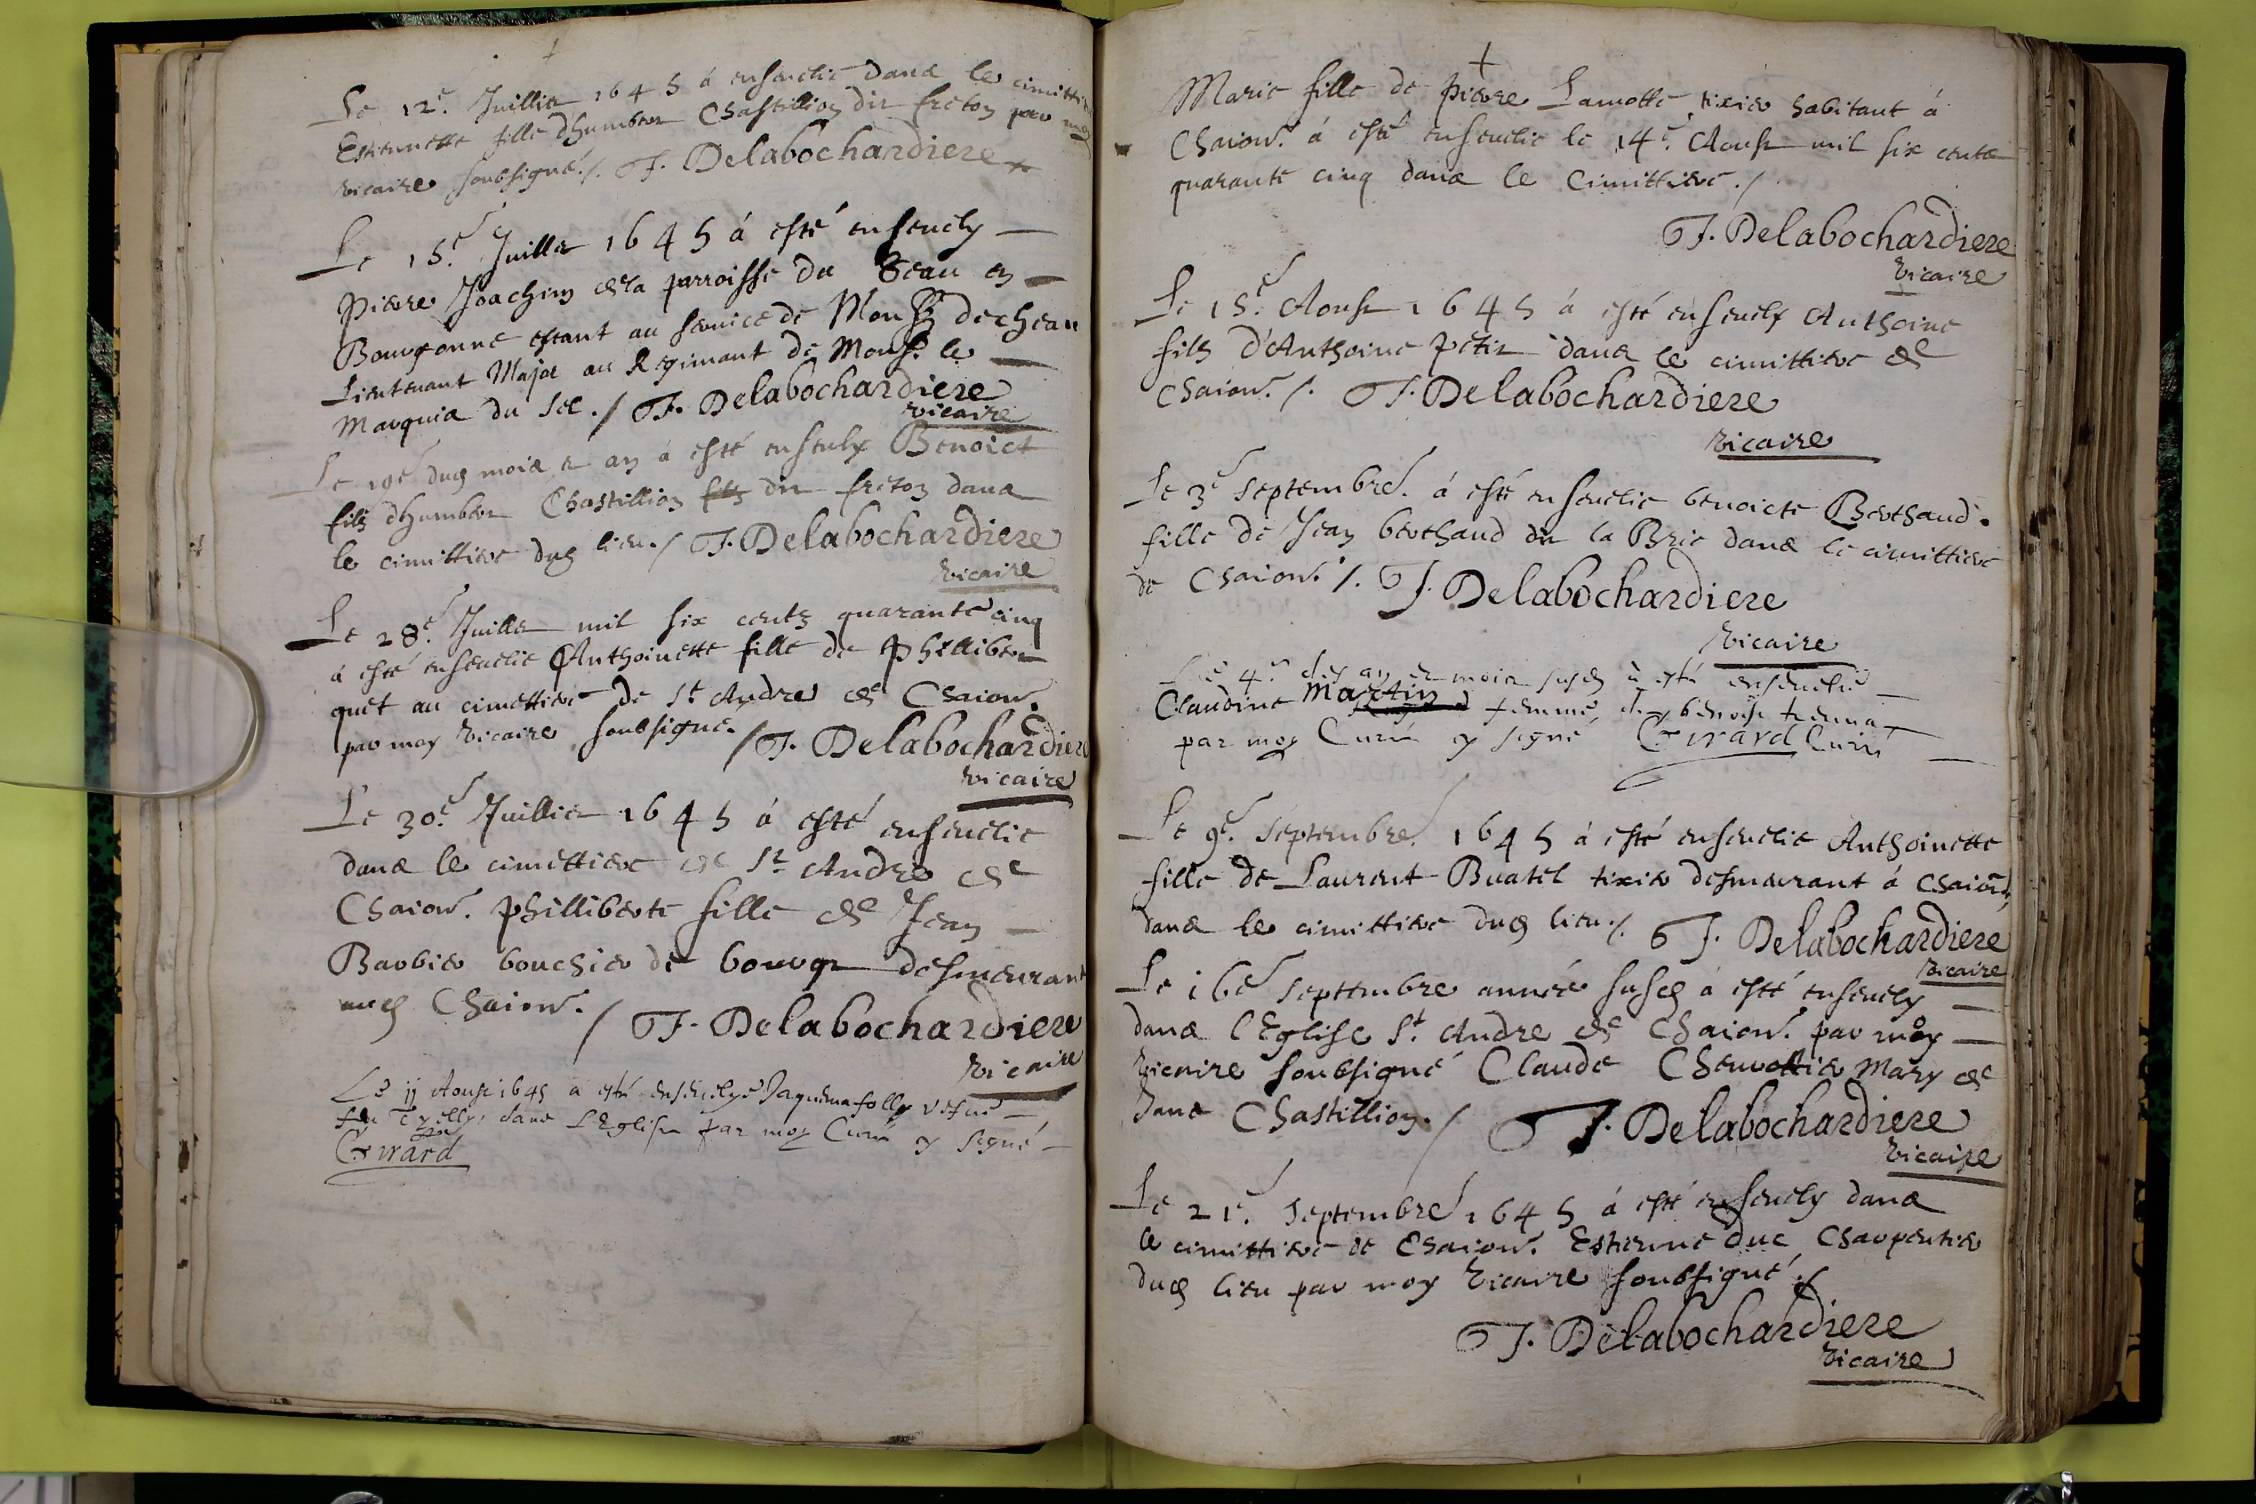 Le 12e. Juillier 1645 á ensevelie dans le cimittie
Estiennette fille dhumbert Chastillion dit freton par moy
vicaire soubsigné ./. J. Delabochardiere
Le 15e. Juillet 1645 á esté ensevely
Pierre Joachim de la parroisse du en
Bourgonne estant au service de Monsr decheau
Lieutenant Major au Regimant de Monsr. le
Marquis du sel ./ J. Delabochardiere
vicaire
Le dud mois et an á esté ensevely Benoict
fils dhumbert Chastillion dit freton dans
le cimittiere dud lieu ./ J. Delabochardiere
vicaire
Le 28e. Juillet mil six centz quarante cinq
á esté ensevelie Anthoinette fille de Philibert
quet au cimettiere de St Andre de Chaiou.
par moy vicaire soubsigné. / J. Delabochardiere
vicaire
Le 30e. Juillier 1645 á esté ensevelie
dans le cimettiere de St Andre de
Chaiou. Philliberte fille de Jean
Barbier bouchier de bourg desmeurant
aud Chaiou. / J. Delabochardiere
vicaire
Le 11 Aoust 1645 a esté ensevelye Jaquema folly vefue
feu Tyelly, dans L'Eglise par moy Curé y signé
Girard
Marie fille de Pierre Lamotte tixier habitant á
Chaiou. á esté ensevelie le 14e. Aoust mil six cents
quarante cinq dans le Cimittiere ./.
J. Delabochardiere
vicaire
Le 15e. Aoust 1645 á esté ensevely Anthoine
fils d'Anthoine petit dans le cimittiere de
Chaiou. /. J. Delabochardiere
vicaire
Le 3e Septembre. á esté ensevelie benoicte Berthaud.
fille de Jean berthaud dit la Brie dans le cimittiere
de Chaiou. /. J. Delabochardiere
vicaire
Le 4e des an et mois susd a esté ensevelie
Claudine Martin femme de benoist
par moy Curé y signé Girard Curé
Le 9e. Septembre. 1645 á esté ensevelie Anthoinette
fille de Laurent Buatel tixier desmeurant á Chaiou,
dans le cimittiere dud lieu ./. J. Delabochardiere
vicaire
Le 16e Septembre année susd á esté ensevely
dans l'Eglise St. Andre de Chaiou. par moy
vicaire soubsigné Claude Mary de
Jane Chastillion. / J. Delabochardiere
vicaire
Le 21e. Septembre 1645 á esté ensevely dans
le cimittiere de Chaiou. Estienne Duc Charpentier
dud lieu par moy vicaire soubsigné ./
J. Delabochardiere
vicaire